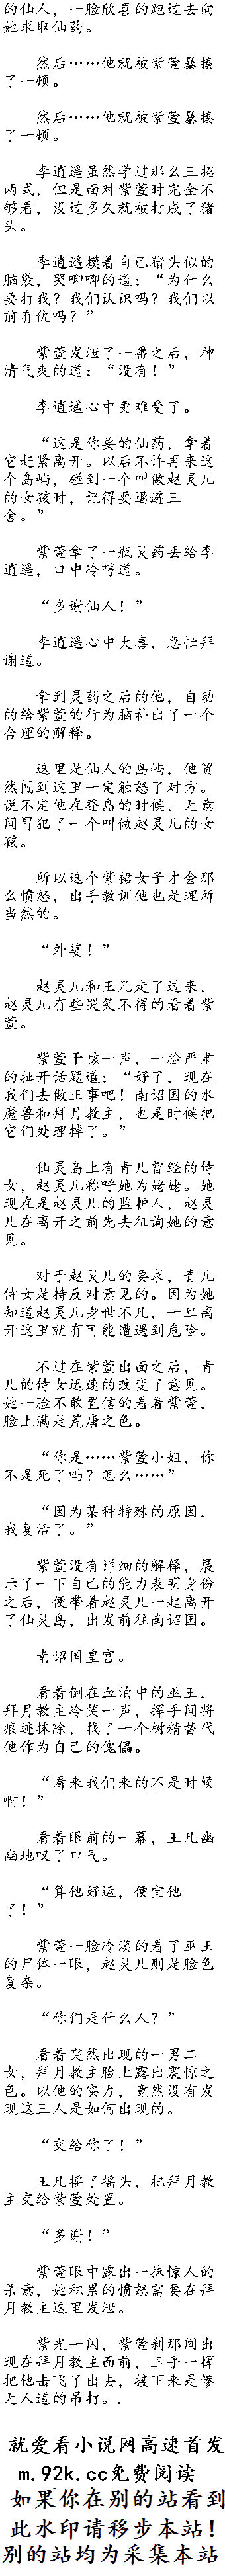 的仙人，一脸欣喜的跑过去向
她求取仙药。
然后……他就被紫萱暴揍
了一顿。
然后……他就被紫萱暴揍
了一顿。
李逍遥虽然学过那么三招
两式，但是面对紫萱时完全不
够看，没过多久就被打成了猪
头。
李逍遥摸着自己猪头似的
脑袋，哭唧唧的道：“为什么
要打我？我们认识吗？我们以
前有仇吗？”
紫萱发泄了一番之后，神
清气爽的道：“没有！”
李逍遥心中更难受了。
“这是你要的仙药，拿着
它赶紧离开。以后不许再来这
个岛屿，碰到一个叫做赵灵儿
的女孩时，记得要退避三
舍。”
紫萱拿了一瓶灵药丢给李
逍遥，口中冷哼道。
“多谢仙人！”
李逍遥心中大喜，急忙拜
谢道。
拿到灵药之后的他，自动
的给紫萱的行为脑补出了一个
合理的解释。
这里是仙人的岛屿，他贸
然闯到这里一定触怒了对方。
说不定他在登岛的时候，无意
间冒犯了一个叫做赵灵儿的女
孩。
所以这个紫裙女子才会那
么愤怒，出手教训他也是理所
当然的。
“外婆！”
赵灵儿和王凡走了过来，
赵灵儿有些哭笑不得的看着紫
萱。
紫萱干咳一声，一脸严肃
的扯开话题道：“好了，现在
我们去做正事吧！南诏国的水
魔兽和拜月教主，也是时候把
它们处理掉了。”
仙灵岛上有青儿曾经的侍
女，赵灵儿称呼她为姥姥。她
现在是赵灵儿的监护人，赵灵
儿在离开之前先去征询她的意
见。
对于赵灵儿的要求，青儿
侍女是持反对意见的。因为她
知道赵灵儿身世不凡，一旦离
开这里就有可能遭遇到危险。
不过在紫萱出面之后，青
儿的侍女迅速的改变了意见。
她一脸不敢置信的看着紫萱，
脸上满是荒唐之色。
“你是……紫萱小姐，你
不是死了吗？怎么……”
“因为某种特殊的原因，
我复活了。”
紫萱没有详细的解释，展
示了一下自己的能力表明身份
之后，便带着赵灵儿一起离开
了仙灵岛，出发前往南诏国。
南诏国皇宫。
看着倒在血泊中的巫王，
拜月教主冷笑一声，挥手间将
痕迹抹除，找了一个树精替代
他作为自己的傀儡。
“看来我们来的不是时候
啊！”
看着眼前的一幕，王凡幽
幽地叹了口气。
“算他好运，便宜他
了！”
紫萱一脸冷漠的看了巫王
的尸体一眼，赵灵儿则是脸色
复杂。
“你们是什么人？”
看着突然出现的一男二
女，拜月教主脸上露出震惊之
色。以他的实力，竟然没有发
现这三人是如何出现的。
“交给你了！”
王凡摇了摇头，把拜月教
主交给紫萱处置。
“多谢！”
紫萱眼中露出一抹惊人的
杀意，她积累的愤怒需要在拜
月教主这里发泄。
紫光一闪，紫萱刹那间出
现在拜月教主面前，玉手一挥
把他击飞了出去，接下来是惨
无人道的吊打。.
就爱看小说网高速首发
m.92k.cc免费阅读
如果你在别的站看到
此水印请移步本站！
别的站均为采集本站